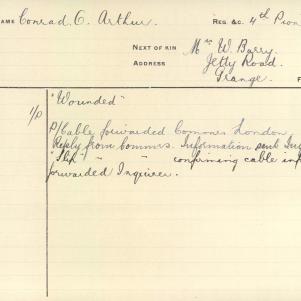 NAME Conrad, C. Arthur. REG &C. 4th Pion
NEXT OF KIN Mrs W. Barry.
ADDRESS Jetty Road.
Grange.
"Wounded"
P/Cable forwarded Commrs London
Reply from Commrs. Information sent Inq
" " confirming cable inf
forwarded Inquirer.